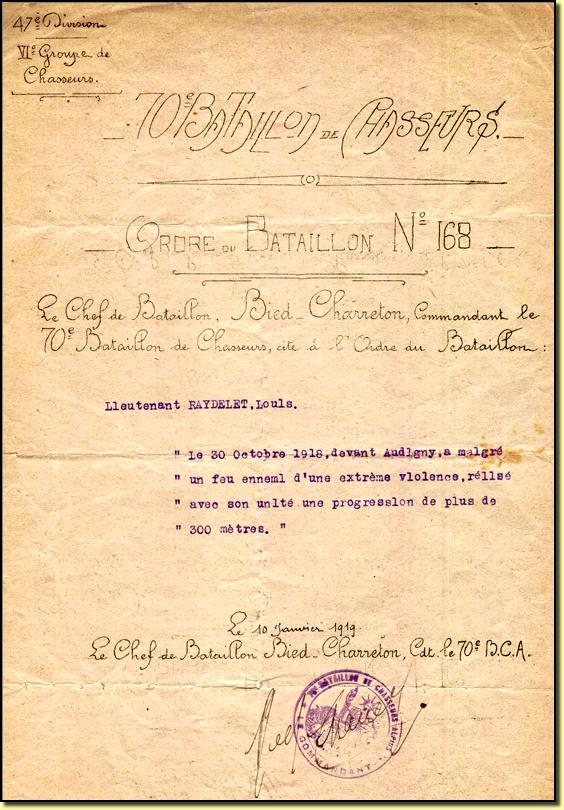 47e Division
VIe Groupe de
Chasseurs.
70e BATAILLON DE CHASSEURS.
ORDRE DU BATAILLON No 168
Le Chef de Bataillon, Bied-Charreton, Commandant le
70e Bataillon de Chasseurs, cite à l'Ordre du Bataillon :
Lieutenant RAYDELET,Louis.
" Le 30 Octobre 1918,devant Audigny,a malgré
" un feu ennemi d'une extrème violence,rélisé
" avec son unité une progression de plus de
" 300 mètres. "
Le 10 Janvier 1919.
Le Chef de Bataillon Bied-Charreton, Cdt. le 70e B.C.A.
70e BATAILLON DE CHASSEURS ALPINS
COMMANDANT